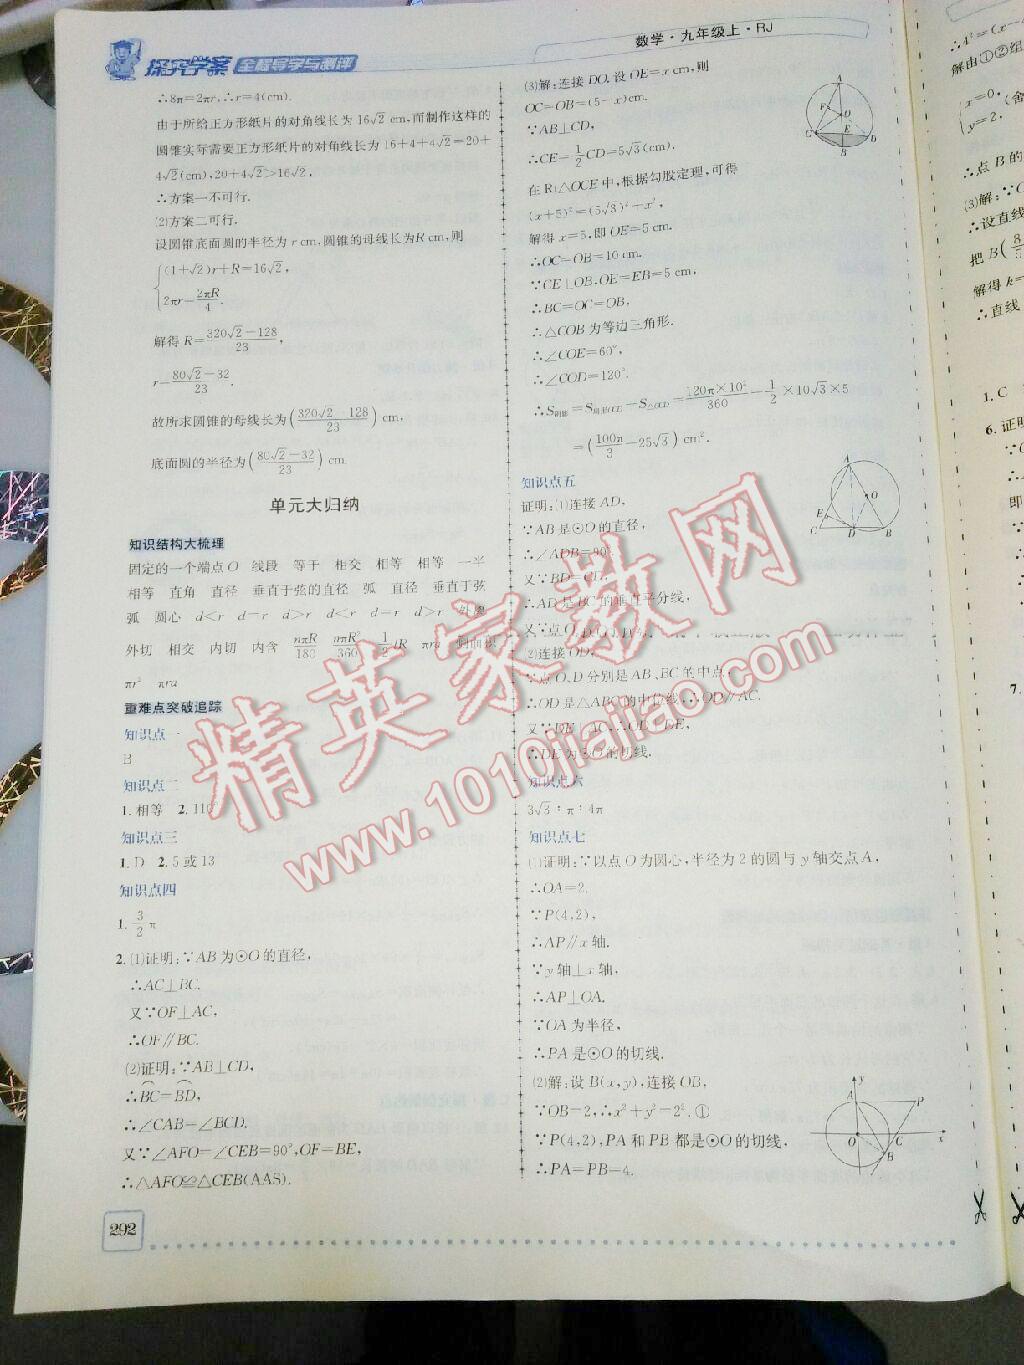 探究学案 全程导学与测评
数学·九年级上·RJ
∴8π=2πr,∴r=4(cm).
由于所给正方形纸片的对角线长为16√2 cm,而制作这样的
圆锥实际需要正方形纸片的对角线长为16+4+4√2=20+
4√2(cm),20+4√2>16√2,
∴方案一不可行.
(2)方案二可行.
设圆锥底面圆的半径为r cm,圆锥的母线长为R cm,则
{(1+√2)r+R=16√2,
2πr=2πR/4.
解得R=(320√2-128)/23,
r=(80√2-32)/23.
故所求圆锥的母线长为((320√2-128)/23) cm,
底面圆的半径为((80√2-32)/23) cm.
单元大归纳
知识结构大梳理
固定的一个端点O 线段 等于 相交 相等 相等 一半
相等 直角 直径 垂直于弦的直径 弧 直径 垂直于弦
弧 圆心 d<r d=r d>r d<r d=r d>r 外离
外切 相交 内切 内含 nπR/180 nπR²/360 1/2 lR πra 侧面积
πr² πra
重难点突破追踪
知识点一
B
知识点二
1.相等 2.110°
知识点三
1.D 2.5或13
知识点四
1. 3/2 π
2.(1)证明:∵AB为⊙O的直径,
∴AC⊥BC.
又∵OF⊥AC,
∴OF∥BC.
(2)证明:∵AB⊥CD,
∴BC=BD,
∴∠CAB=∠BCD.
又∵∠AFO=∠CEB=90°,OF=BE,
∴△AFO≌△CEB(AAS).
292
(3)解:连接DO.设OE=x cm,则
OC=OB=(5+x)cm.
∵AB⊥CD,
∴CE=1/2 CD=5√3(cm).
在Rt△OCE中,根据勾股定理,可得
(x+5)²=(5√3)²+x²,
解得x=5.即OE=5 cm.
∴OC=OB=10 cm.
∵CE⊥OB,OE=EB=5 cm,
∴BC=OC=OB,
∴△COB为等边三角形.
∴∠COE=60°,
∴∠COD=120°.
∴S阴影=S扇形OCD-S△OCD=120π×10²/360-1/2×10√3×5
=(100π/3-25√3) cm².
知识点五
证明:(1)连接AD,
∵AB是⊙O的直径,
∴∠ADB=90°.
又∵BD=CD,
∴AD是BC的垂直平分线,
(2)连接OD,
∵点O、D分别是AB、BC的中点,
∴OD是△ABC的中位线,∴OD∥AC.
又∵DE⊥AC,∴OD⊥DE,
∴DE为⊙O的切线.
知识点六
3√3∶π∶4π
知识点七
(1)证明:∵以点O为圆心,半径为2的圆与y轴交点A,
∴OA=2.
∵P(4,2),
∴AP∥x轴.
∵y轴⊥x轴,
∴AP⊥OA.
∵OA为半径,
∴PA是⊙O的切线.
(2)解:设B(x,y),连接OB,
∵OB=2,∴x²+y²=2².①
∵P(4,2),PA和PB都是⊙O的切线,
∴PA=PB=4.
精英家教网
www.1010jiajiao.com
解由①②组
x=0,
y=2.
∴点B的
(3)解:∵
∴设直线
把B(8/5
解得k=
∴直线
1.C
6.证明
即
7.